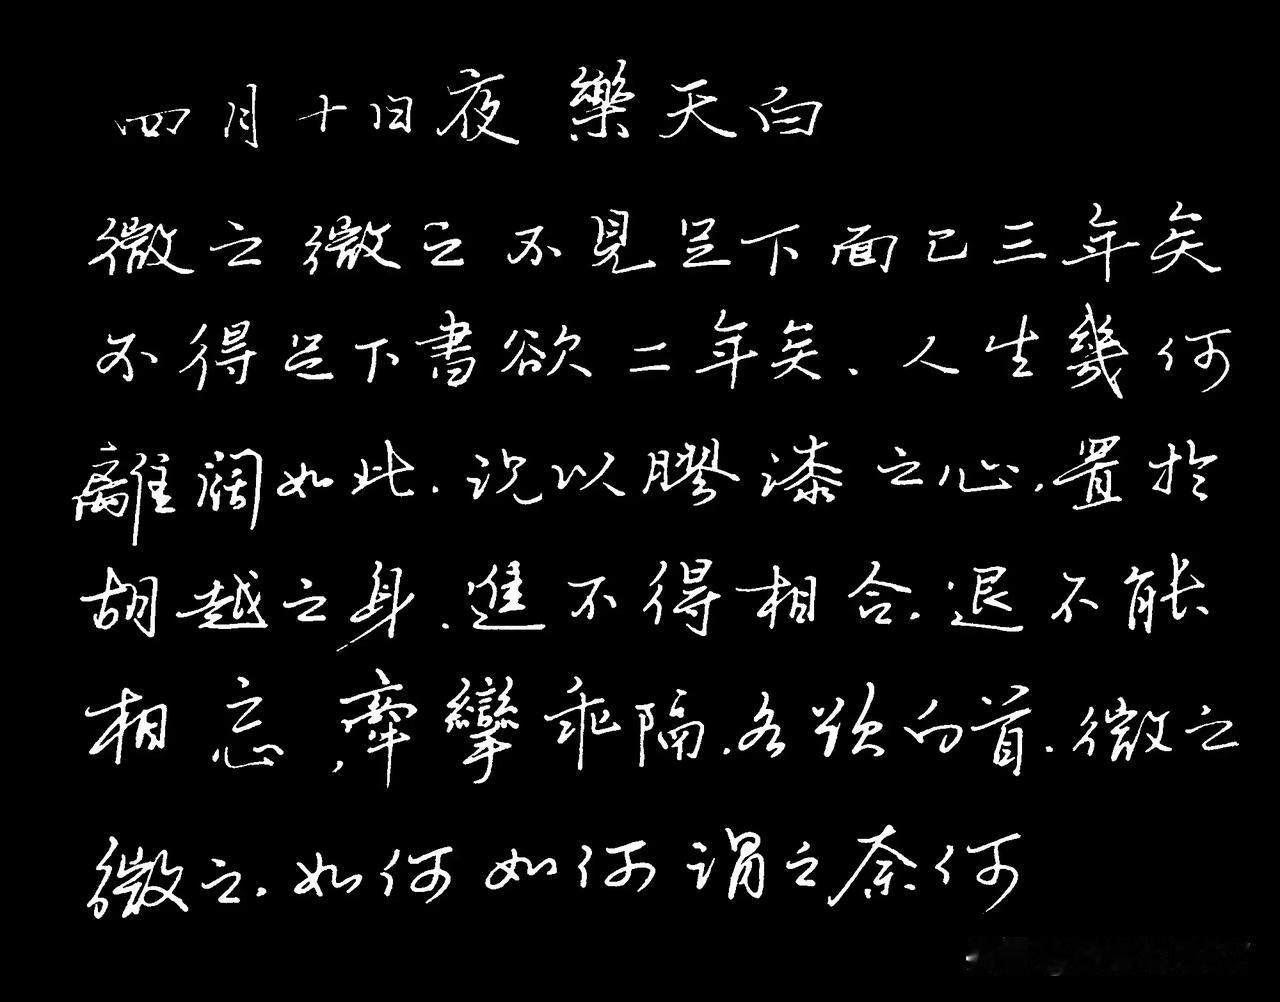 四月十日夜 樂天白
微之微之不見足下面已三年矣
不得足下書欲二年矣.人生幾何
離阔如此.况以膠漆之心.置於
胡越之身.進不得相合.退不能
相忘,牽攣乖隔.各欲白首.微之
微之.如何如何謂之奈何